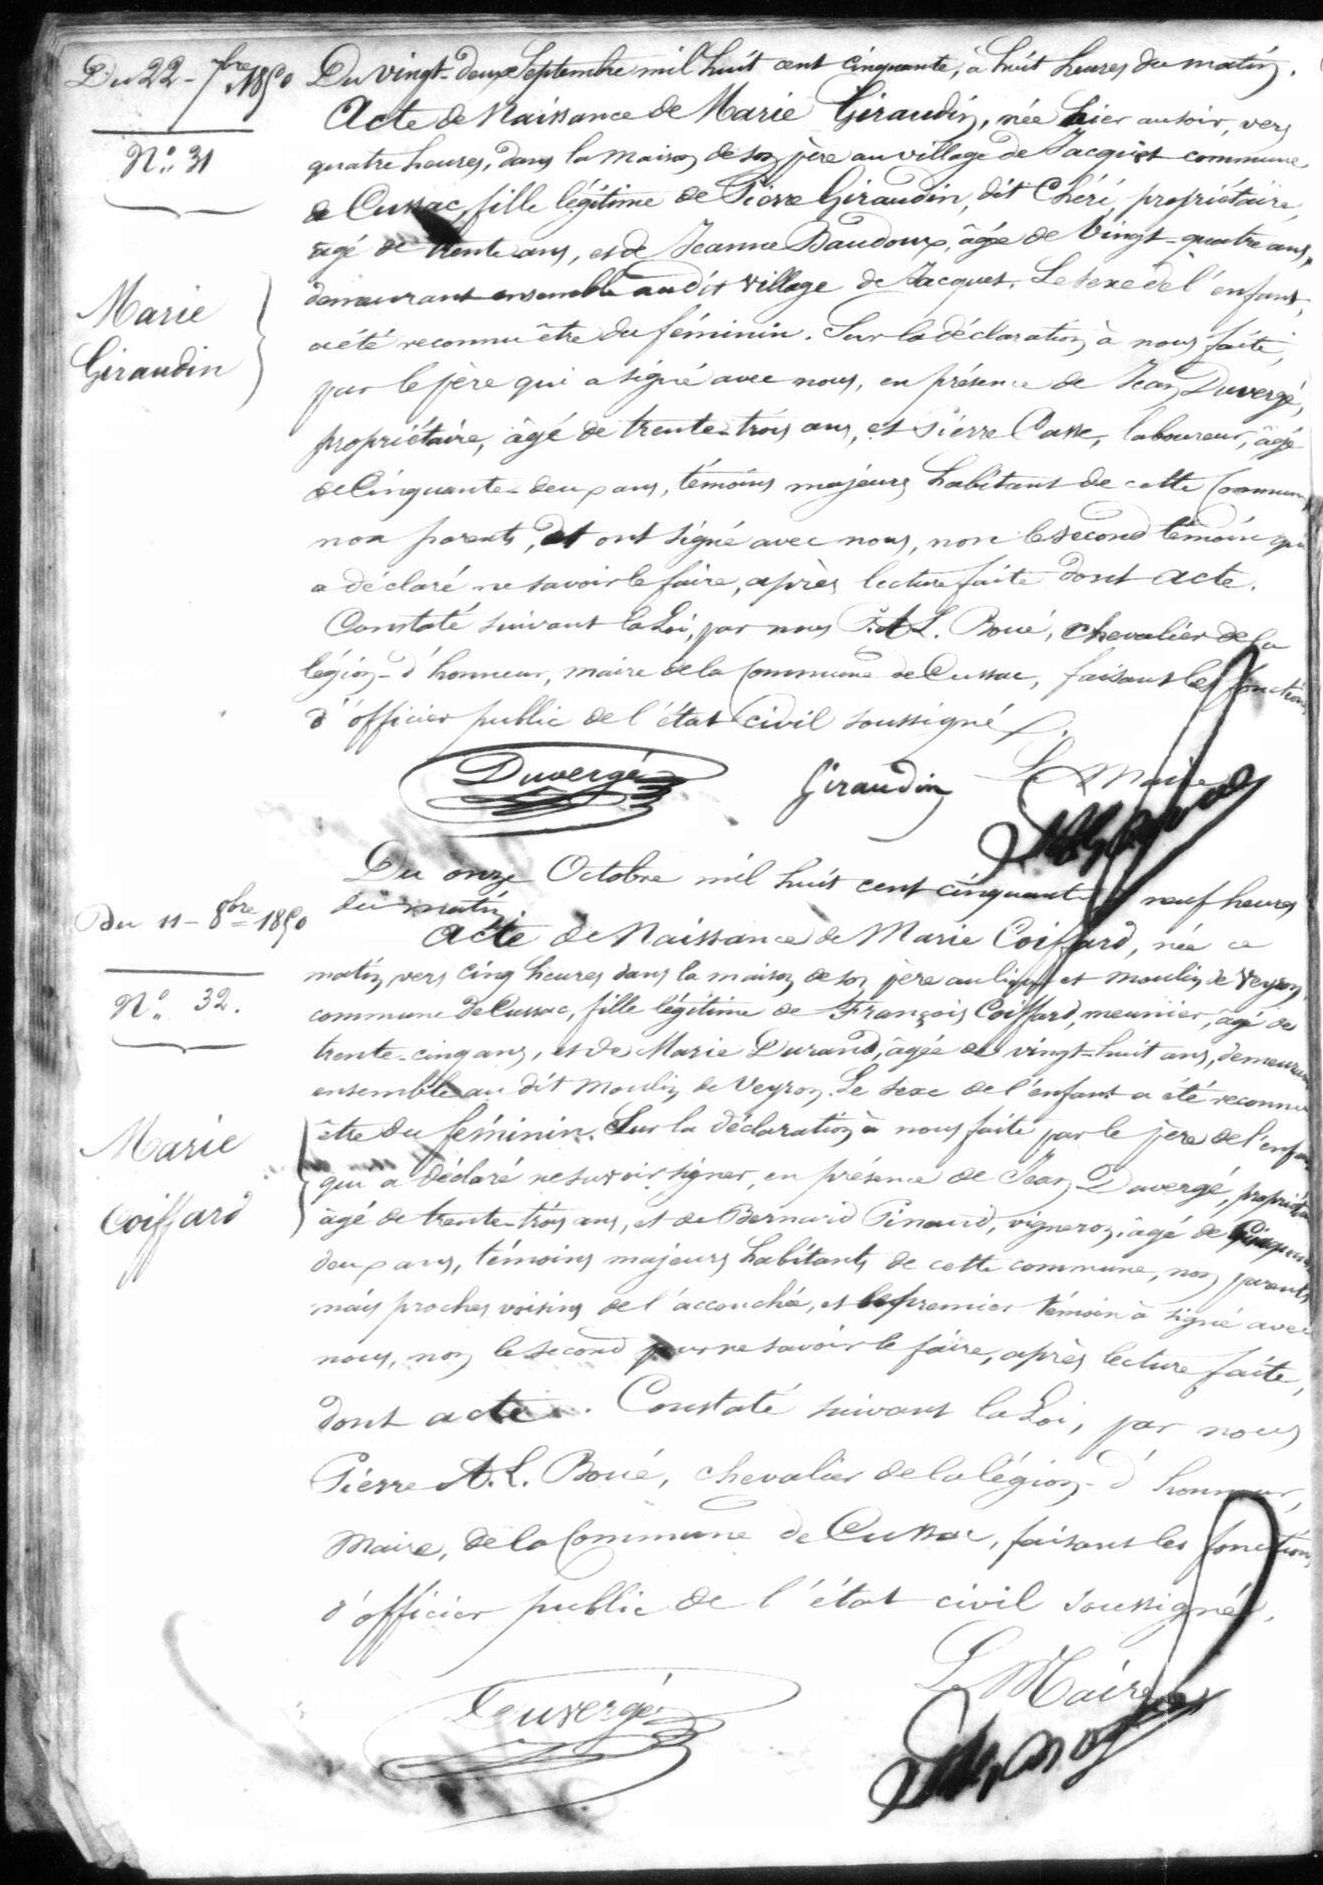 Du 22 - 7bre 1850
N° 31
Marie
Giraudin
Du vingt-deux Septembre mil huit cent cinquante, à huit heures du matin.
Acte de Naissance de Marie Giraudin, née hier au soir, vers
quatre heures, dans la maison de son père au village de Jacquet commune
de Cussac, fille légitime de Pierre Giraudin, dit Chéri, propriétaire,
agé de trente ans, et de Jeanne Baudoux, âgée de Vingt-quatre ans,
demeurant ensemble audit village de Jacques. Le sexe de l'enfant,
a été reconnu être du féminin. Sur la déclaration à nous faite,
par le père qui a signé avec nous, en présence de Jean Duvergé,
propriétaire, âgé de trente-trois ans, et Pierre Casse, laboureur, âgé
de Cinquante-deux ans, témoins majeurs habitant de cette Commune
non parents, et ont signé avec nous, non le second témoin qui
a déclaré ne savoir le faire, après lecture faite dont acte.
Constaté suivant la Loi, par nous P. A. L. Boué, chevalier de la
légion-d'honneur, maire de la Commune de Cussac, faisant les fonctions
d'officier public de l'état Civil soussigné
Duvergé Giraudin Le Maire
Du 11 - 8bre 1850
N° 32.
Marie
Coiffard
Du onze Octobre mil huit cent cinquante neuf heures
du matin.
Acte de Naissance de Marie Coiffard, née ce
matin vers cinq heures dans la maison de son père au lieu et moulin de Veyron,
commune de Cussac, fille légitime de François Coiffard, meunier, âgé de
trente-cinq ans, et de Marie Durand, âgée de vingt-huit ans, demeurant
ensemble au dit Moulin de Veyron. Le sexe de l'enfant a été reconnu
être du féminin. Sur la déclaration à nous faite par le père de l'enfant
qui a déclaré ne savoir signer, en présence de Jean Duvergé, propriétaire
âgé de trente-trois ans, et de Bernard Pinaud, vigneron, âgé de Cinquante
deux ans, témoins majeurs habitants de cette commune, non parents
mais proches voisins de l'accouchée, et le premier témoin à signé avec
nous, non le second pour ne savoir le faire, après lecture faite,
dont acte. Constaté suivant la Loi, par nous
Pierre A. L. Boué, chevalier de la légion-d'honneur,
Maire, de la Commune de Cussac, faisant les fonctions
d'officier public de l'état civil soussigné.
Duvergé Le Maire